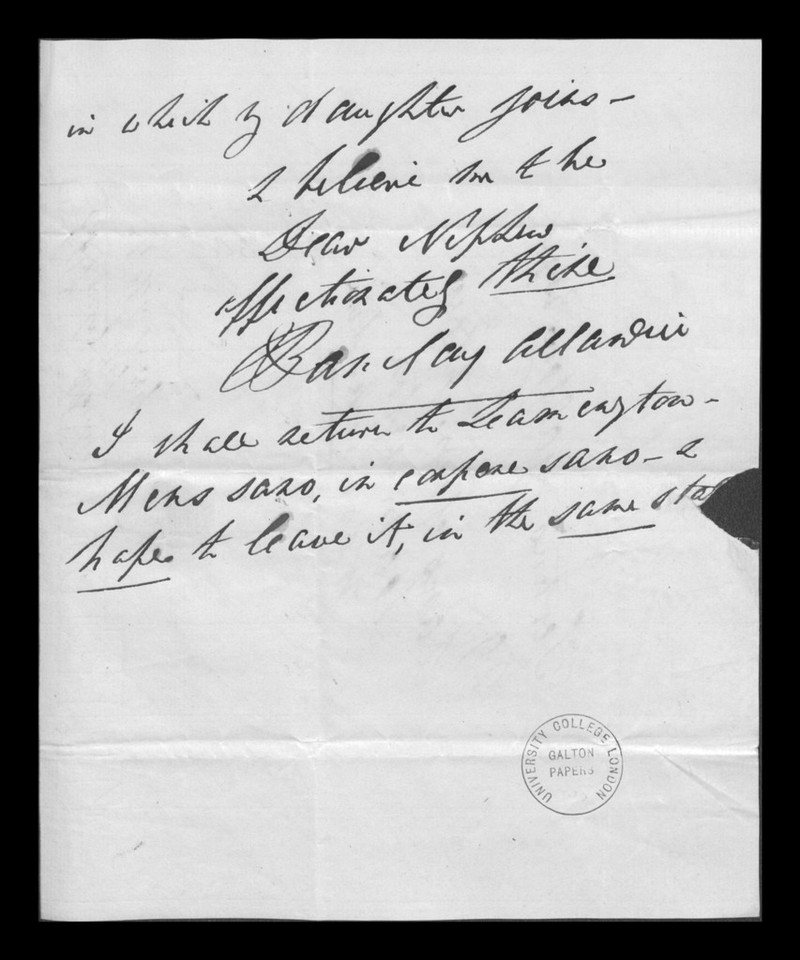 in which my daughter joins –
I believe me to be
Dear Nephew
affectionately thine
Barclay Allardice
I shall return to Leamington –
Mens sano, in corpore sano – &
hope to leave it, in the same
UNIVERSITY COLLEGE LONDON
GALTON
PAPERS